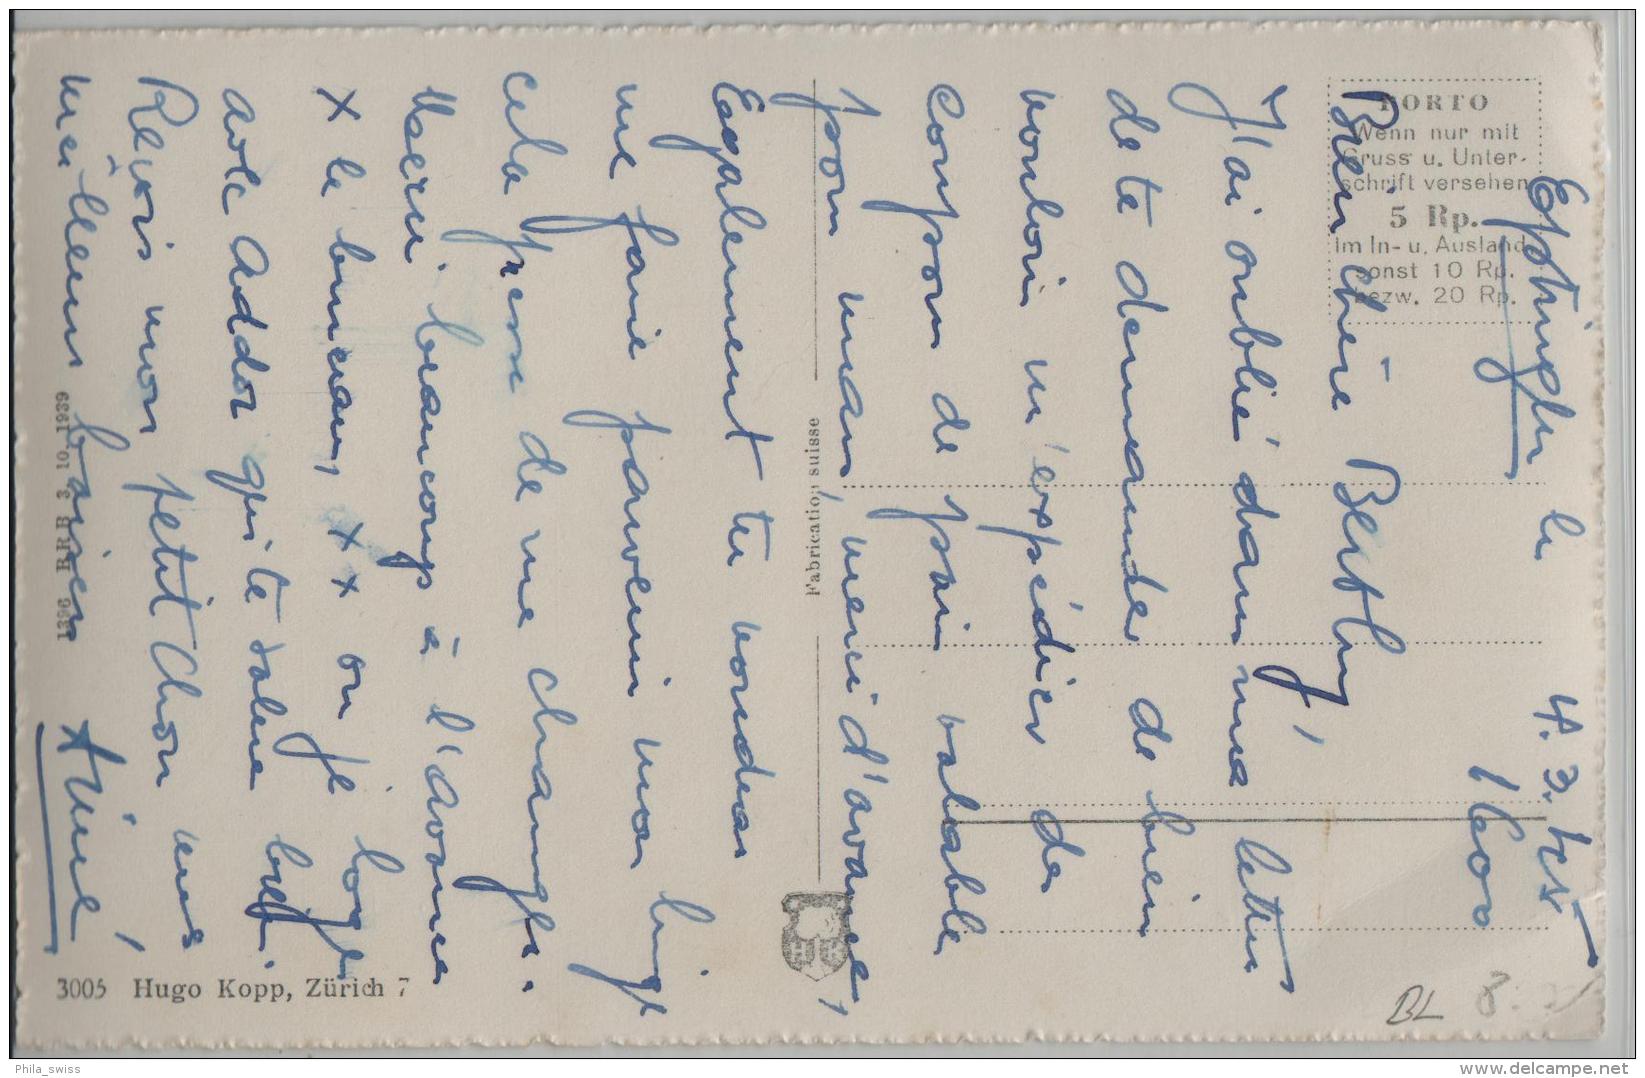 Eptingen le 4. 3.
1600
Bien chère Bethly!
J'ai oublié dans ma lettre
de te demander de bien
vouloir m'expédier des
coupons de pain valable
pour mars, merci d'avance,
Egalement tu voudras
me faire parvenir mon linge
cela presse de me changer.
Aseru. beaucoup à l'avance
x le bureau, x x où je loge
avec Addor qui te salue bief.
Revois mon petit Chou mes
meilleurs baisers Aimé
PORTO
Wenn nur mit
Gruss u. Unter-
schrift versehen
5 Rp.
Im In- u. Ausland
sonst 10 Rp.
bezw. 20 Rp.
Fabrication suisse
HK
1396 BRB 3. 10. 1939
3005 Hugo Kopp, Zürich 7
BL 8.
Phila_swiss
www.delcampe.net